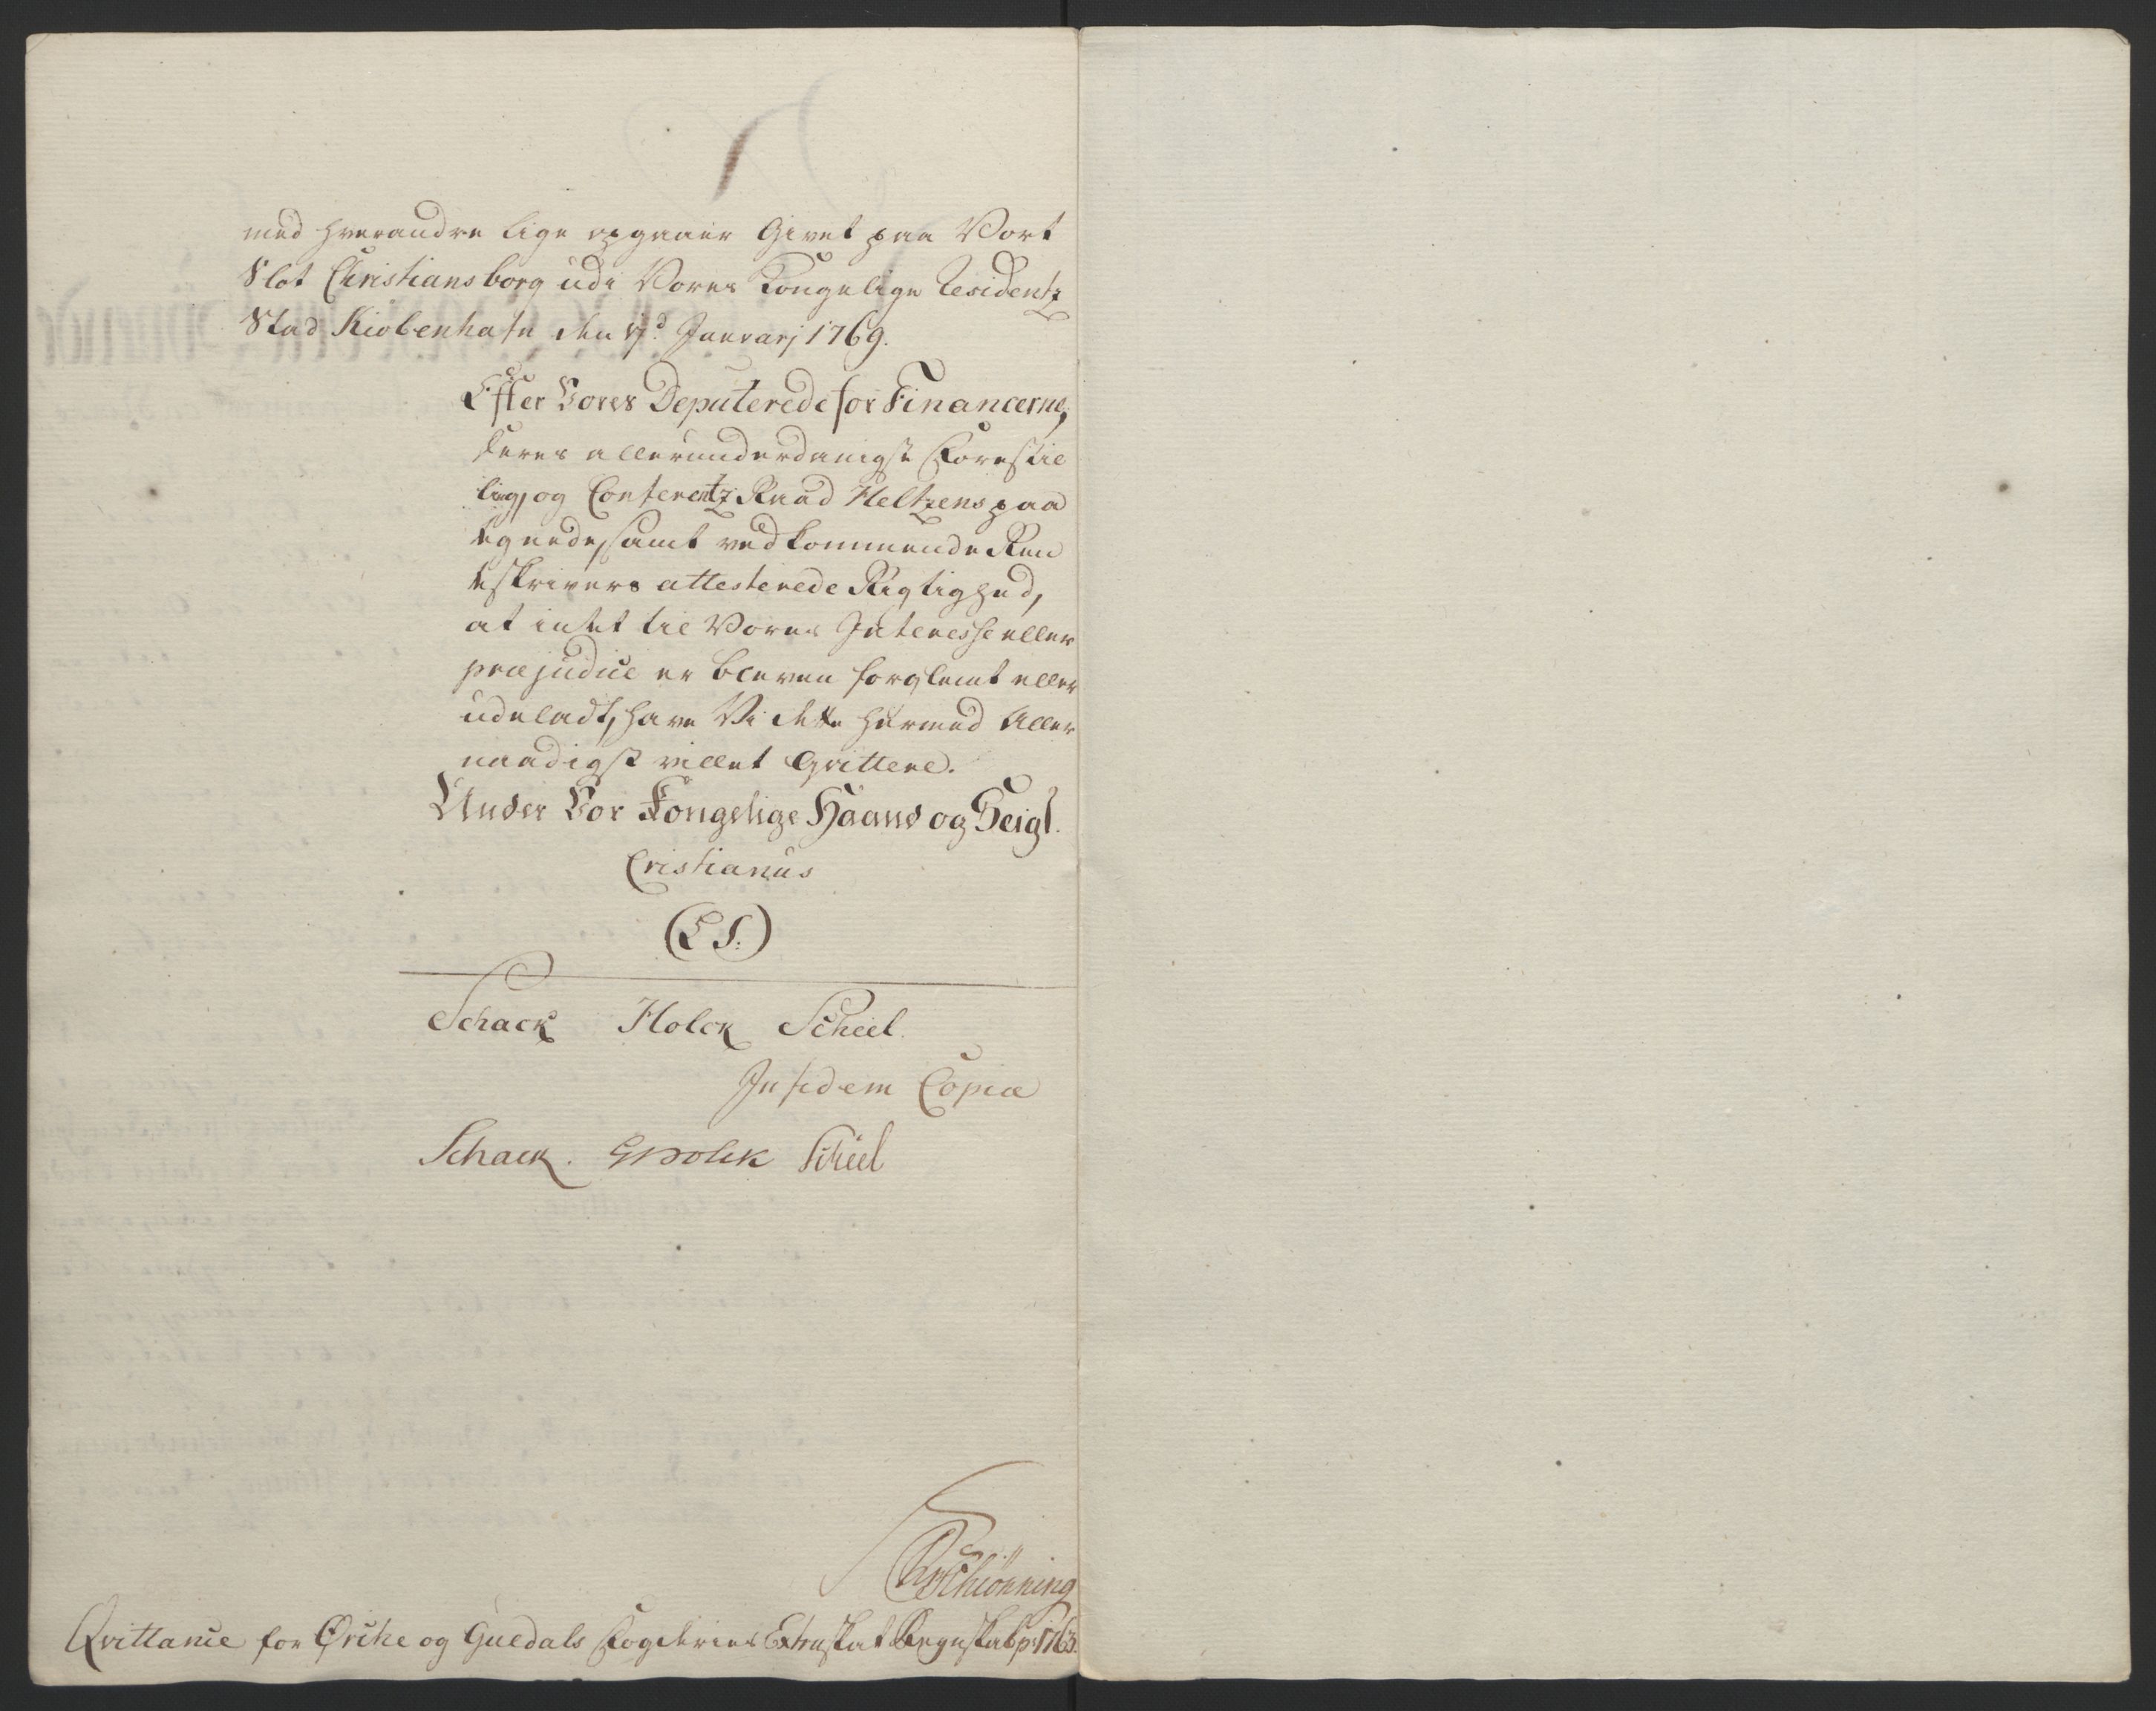 med hverandre lige opgaaer Givet paa Vort
Slot Christiansborg udi Vores Kongelige Residentz
Stad Kiobenhafn den Januarj 1769.
Efter Vores Deputerede for Financerne,
deres allerunderdanigste Forestil
ling, og Conferentz Raad Heltzens paa
egnede, samt vedkommende Ren
teskrivers attesterede Rigtighed,
at intet til Vores Interesse eller
præjudice er bleven forglemt eller
udeladt, have Vi dette hermed Aller
naadigst villet Qvittere.
Under Vor Kongelige Haand og Seigl.
Cristianus
(L S.)
Schack Holck Scheel.
In fidem Copiæ
Schack. GHolck Scheel
Schiönning
Qvittance for Ørche og Guedals Fogderies Extraskat Regnskab p 1763.